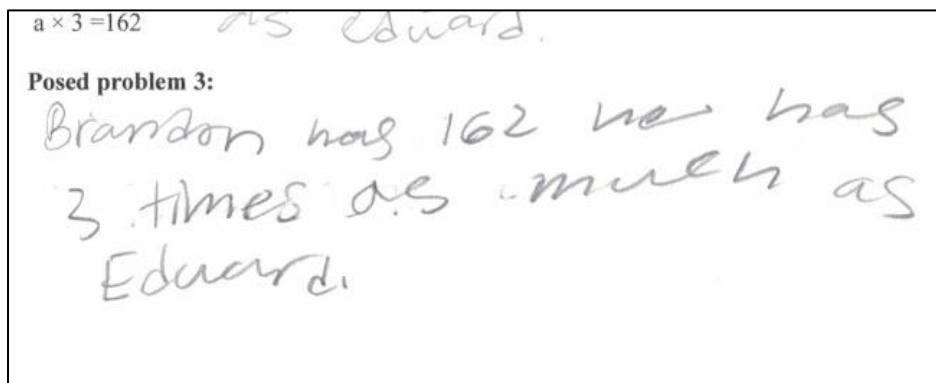 a × 3 =162 as eduard.
Posed problem 3:
Brandon has 162 he has
3 times as much as
Eduard.